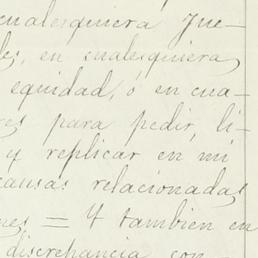 cualesquiera Jue-
les, en cualesquiera
equidad, ó en cua-
res para pedir, li-
y replicar en mi
causas relacionadas
nes = Y tambien en
discrepancia con